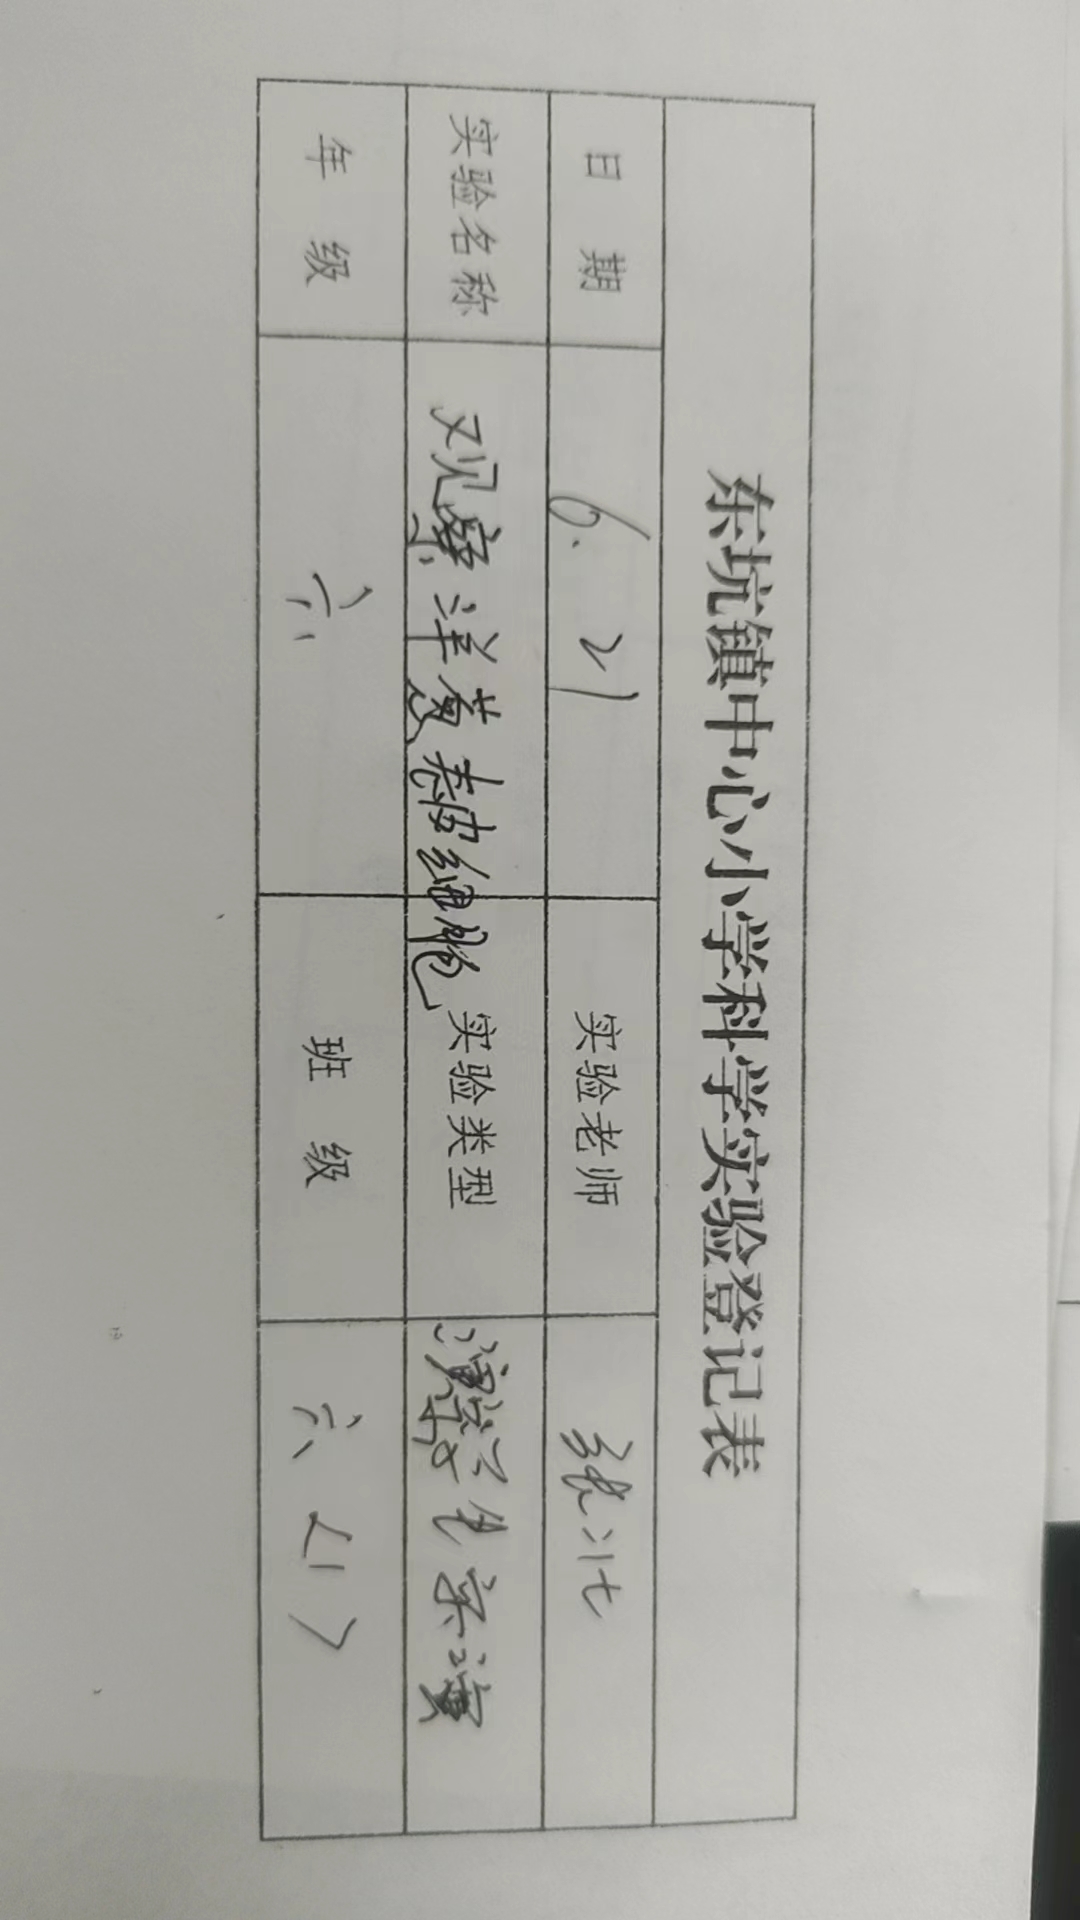 东坑镇中心小学科学实验登记表
日 期 6.21 实验老师 张
实验名称 观察洋葱表皮细胞 实验类型 学生实
年 级 六 班 级 六(1)